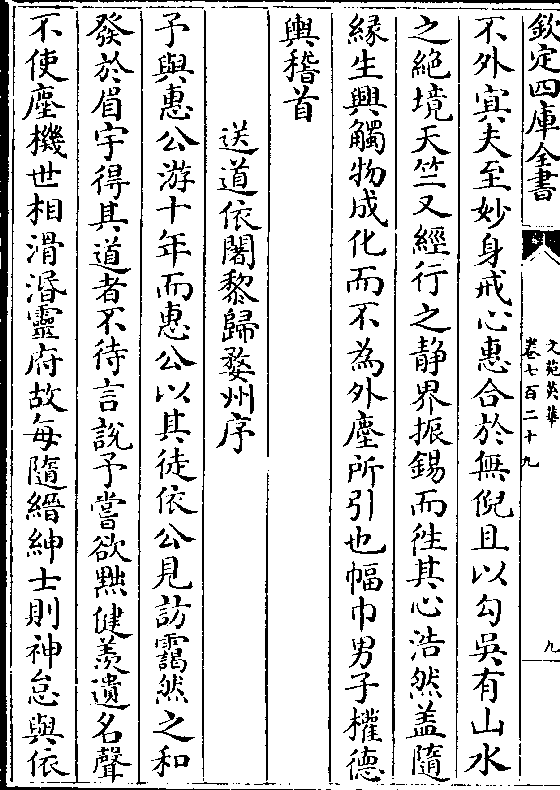 欽定四庫全書
文苑英華
卷七百二十九
九
不外寘夫至妙身戒心惠合於無倪且以勾吳有山水
之絕境天竺又經行之静界振錫而徃其心浩然盖隨
緣生興觸物成化而不為外塵所引也幅巾男子權德
輿稽首
送道依闍黎歸婺州序
予與惠公游十年而惠公以其徒依公見訪靄然之和
發於眉宇得其道者不待言說予嘗欲黜健羡遺名聲
不使塵機世相滑湣靈府故每隨縉紳士則神怠與依